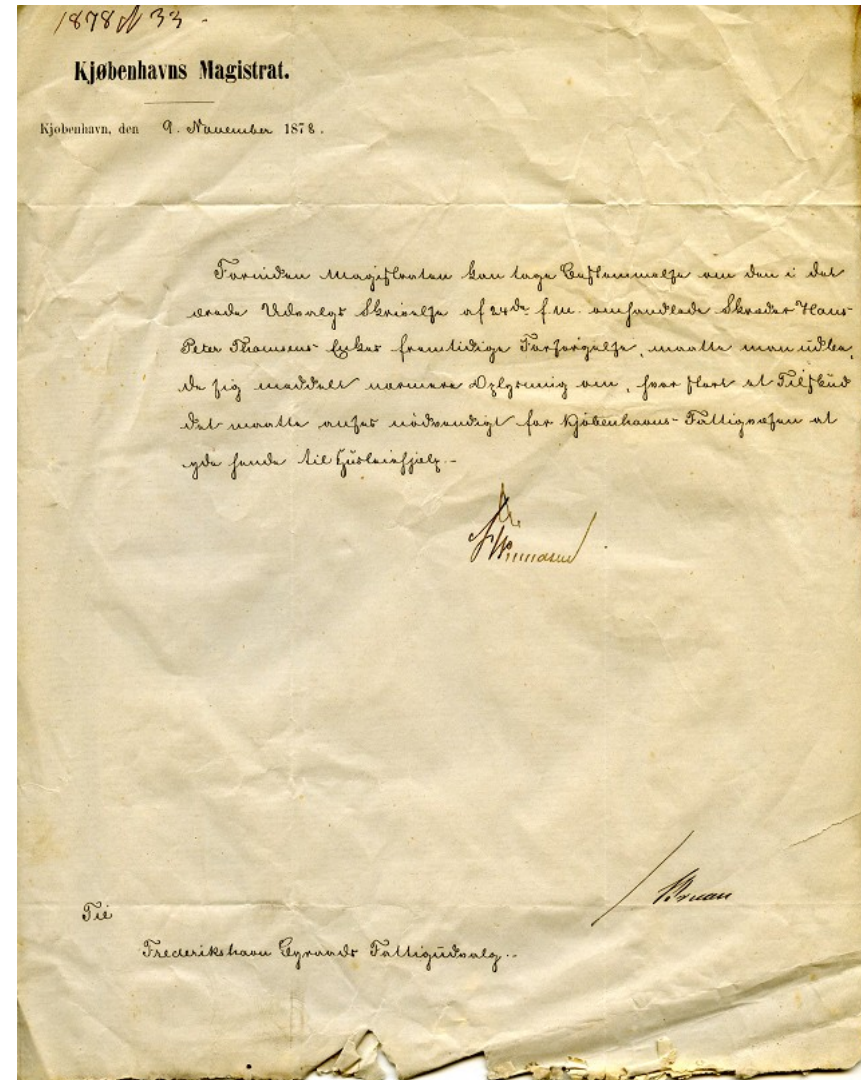 1878 N 33 -
Kjøbenhavns Magistrat.
Kjøbenhavn, den 9. November 1878.
Forinden Magistraten kan tage Bestemmelse om den i det
ærede Udvalgs Skrivelse af 24de f.m. omhandlede Skræder Hans
Peter Thomsens Enkes fremtidige Forsørgelse, maatte man udbe-
de sig meddelt nærmere Oplysning om, hvor stort et Tilskud
det maatte anses nødvendigt for Kjøbenhavns Fattigvæsen at
yde hende til Huusleiehjælp.-
Til
Frederikshavn Byraads Fattigudvalg.-